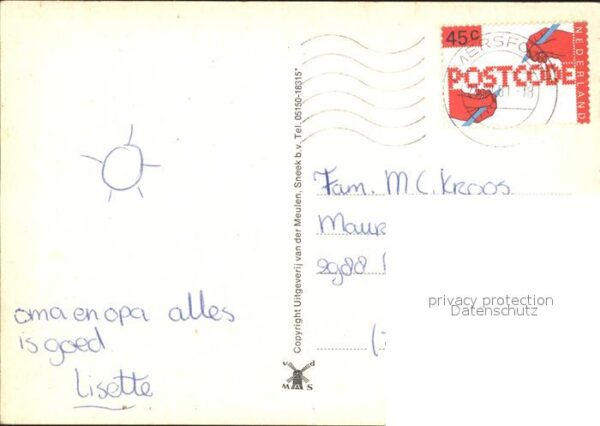 45c
NEDERLAND
POSTCODE
AMERSFOO
Copyright Uitgeverij van der Meulen, Sneek b.v. Tel. 05150-18315*
Fam. M C. Kroos
Maur
oma en opa alles
is goed
Lisette
privacy protection
Datenschutz
v d
M S